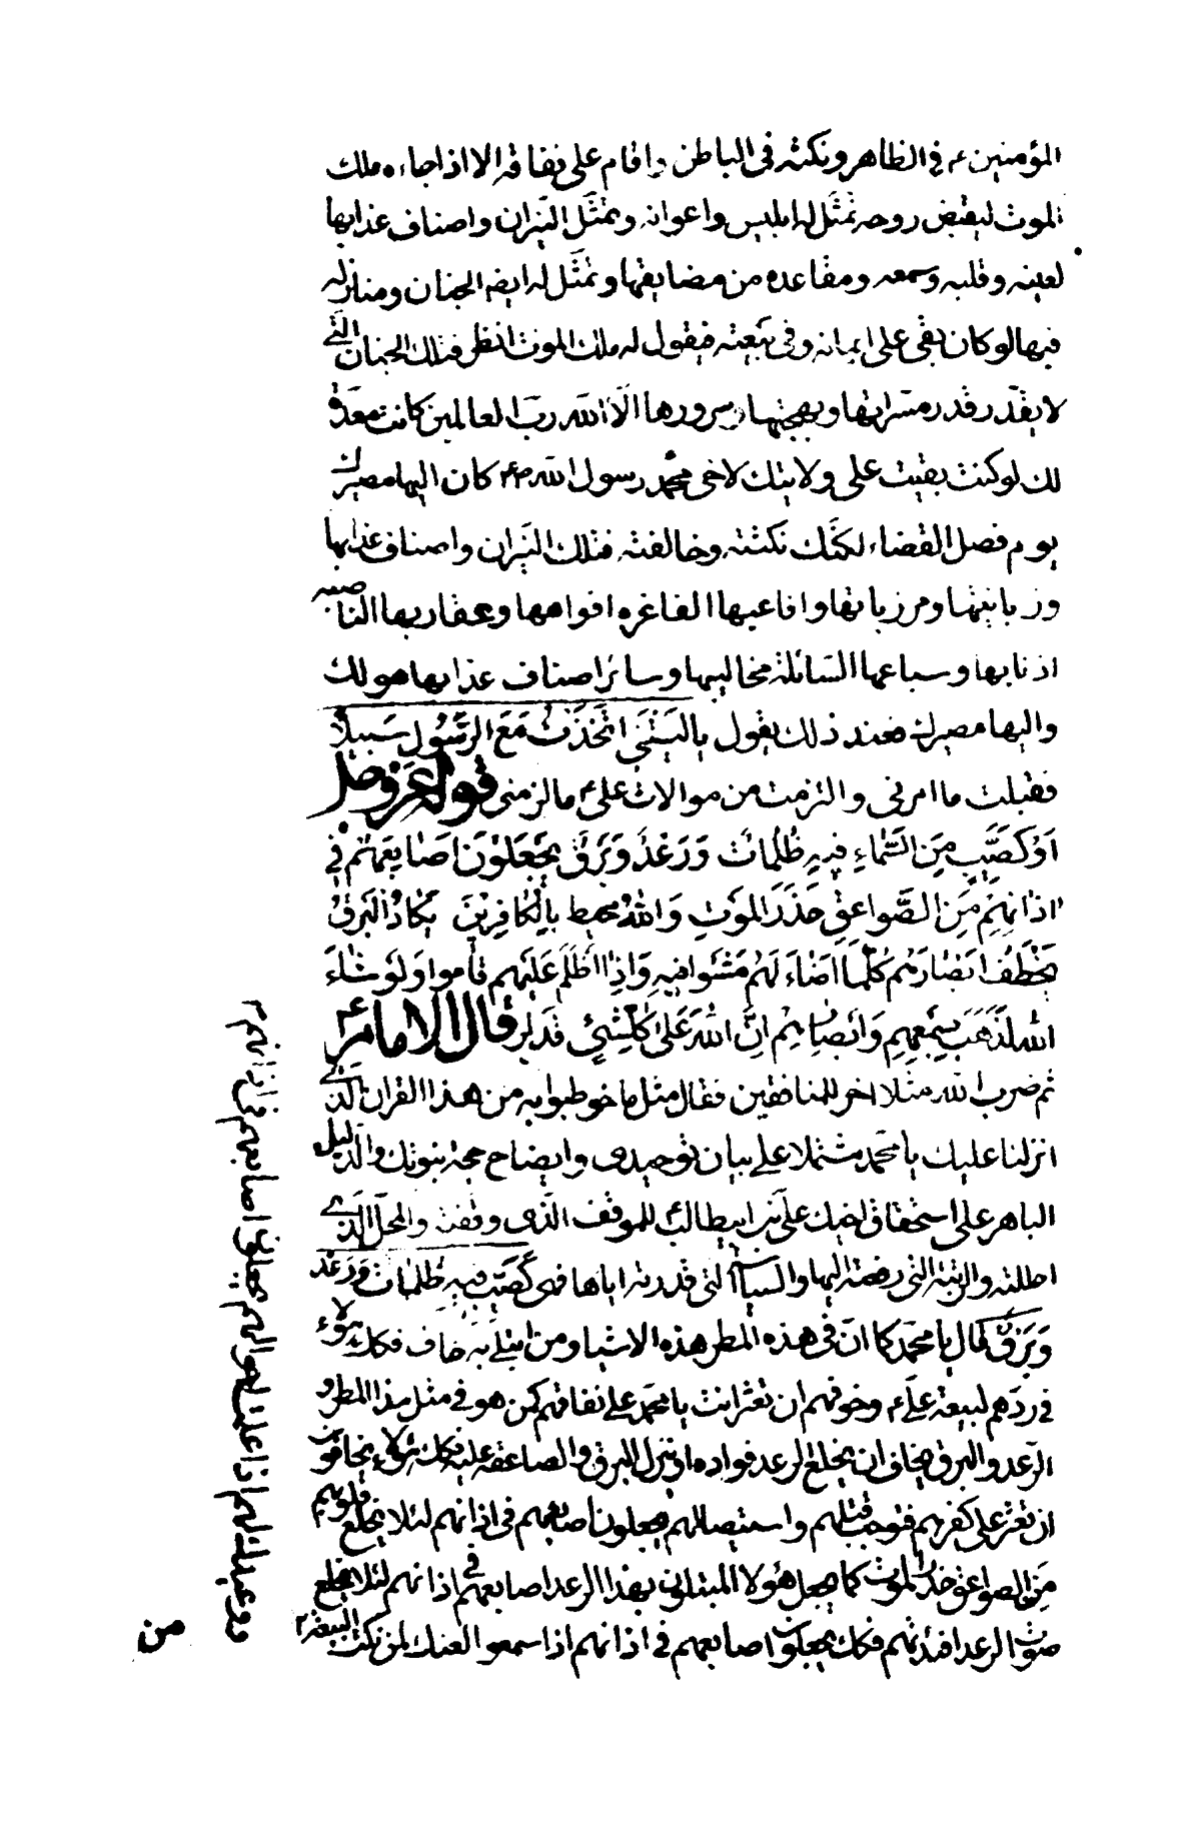 المؤمنين ع في الظاهر ونكثه في الباطن واقام على نفاقه الا اذا جاءه ملك
الموت ليقبض روحه تمثّل له ابليس واعوانه وتمثّل النيران واصناف عذابها
لعينه وقلبه وسمعه ومقاعده من مضايقها وتمثّل له ايضا الجنان ومنازله
فيها لو كان بقى على ايمانه وفى ببيعته فيقول له ملك الموت انظر فتلك الجنان التى
لا يقدر قدر مسراتها وبهجتها وسرورها الا الله ربّ العالمين كانت معدة
لك لو كنت بقيت على ولايتك لاخى محمّد رسول الله ص كان اليها مصيرك
يوم فصل القضاء لكنّك نكثته وخالفته فتلك النيران واصناف عذابها
وزبانيتها ومرزباتها وافاعيها الفاغره افواهها وعقاربها الناصبه
اذنابها وسباعها السائلة مخاليبها وسائر اصناف عذابها هو لك
واليها مصيرك فعند ذلك يقول يا ليتنى اتّخذت مَعَ الرَّسُولِ سَبيلًا
فقبلت ما امرنى والتزمت من موالات على ع ما الزمنى قوله عز وجل
اَوْ كَصَيِّبٍ مِنَ السَّماءِ فيهِ ظُلُماتٌ وَرَعْدٌ وَبَرْقٌ يَجْعَلُونَ اَصابِعَهُمْ في
اذانِهِمْ مِنَ الصَّواعِقِ حَذَرَ المَوْتِ وَاللهُ محيط بِالْكافِرِينَ يَكادُ الْبَرْقُ
يَخْطَفُ اَبْصارَهُم كُلَّما اَضاءَ لَهُمْ مَشَوْا فيهِ وَاِذا اَظْلَمَ عَلَيْهِم قاموا وَلَوْ شاءَ
الله لَذَهَبَ بِسَمْعِهِمْ وَاَبْصارِهِمْ اِنَّ اللهَ عَلى كُلِّشَيْءٍ قَدير قال الامام ع
ثم ضرب الله مثلا اخر للمنافقين فقال مثل ما خوطبوا به من هذا القران الّذى
انزلنا عليك يا محمّد مشتملا على بيان توحيدى وايضاح حجة نبوتك والدليل
الباهر على استحقاق اخيك على بن ابيطالب للموقف الّذى وقفته والمحلّ الّذى
احللته والرتبة التى رفعته اليها والسياسة التى قلدته اياها فهى كَصَيِّبٍ فيهِ ظُلُماتٌ وَرَعْدٌ
وَبَرْقٌ قال يا محمّد كما انّ فى هذه المطر هذه الاشيا ومن ابتلى به خاف فكك هؤلاء
فى ردّهم لبيعة على ع وخوفهم ان تعثر انت يا محمّد على نفاقهم كمن هو فى مثل هذا المطر و
الرّعد والبرق يخاف ان يخلع الرعد فواده او ينزل البرق والصاعقه عليه فكك هؤلاء يخافون
ان تعثر على كفرهم فتوجب قتلهم واستيصالهم يجعلون اصابعهم فى اذانهم لئلا يخلع قلوبهم
مِنَ الصواعق حذر الموت كما يجعل هؤلا المبتلون بهذا الرعد اصابعهم فى اذانهم لئلا يخلع
صوت الرعد افئدتهم فكك يجعلون اصابعهم فى اذانهم اذا سمعوا لعنك لمن نكث البيعة
من